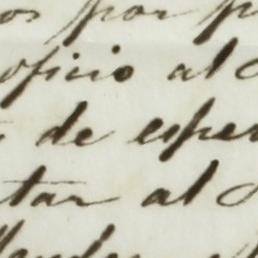 os por p
oficio al
de esper
tar al